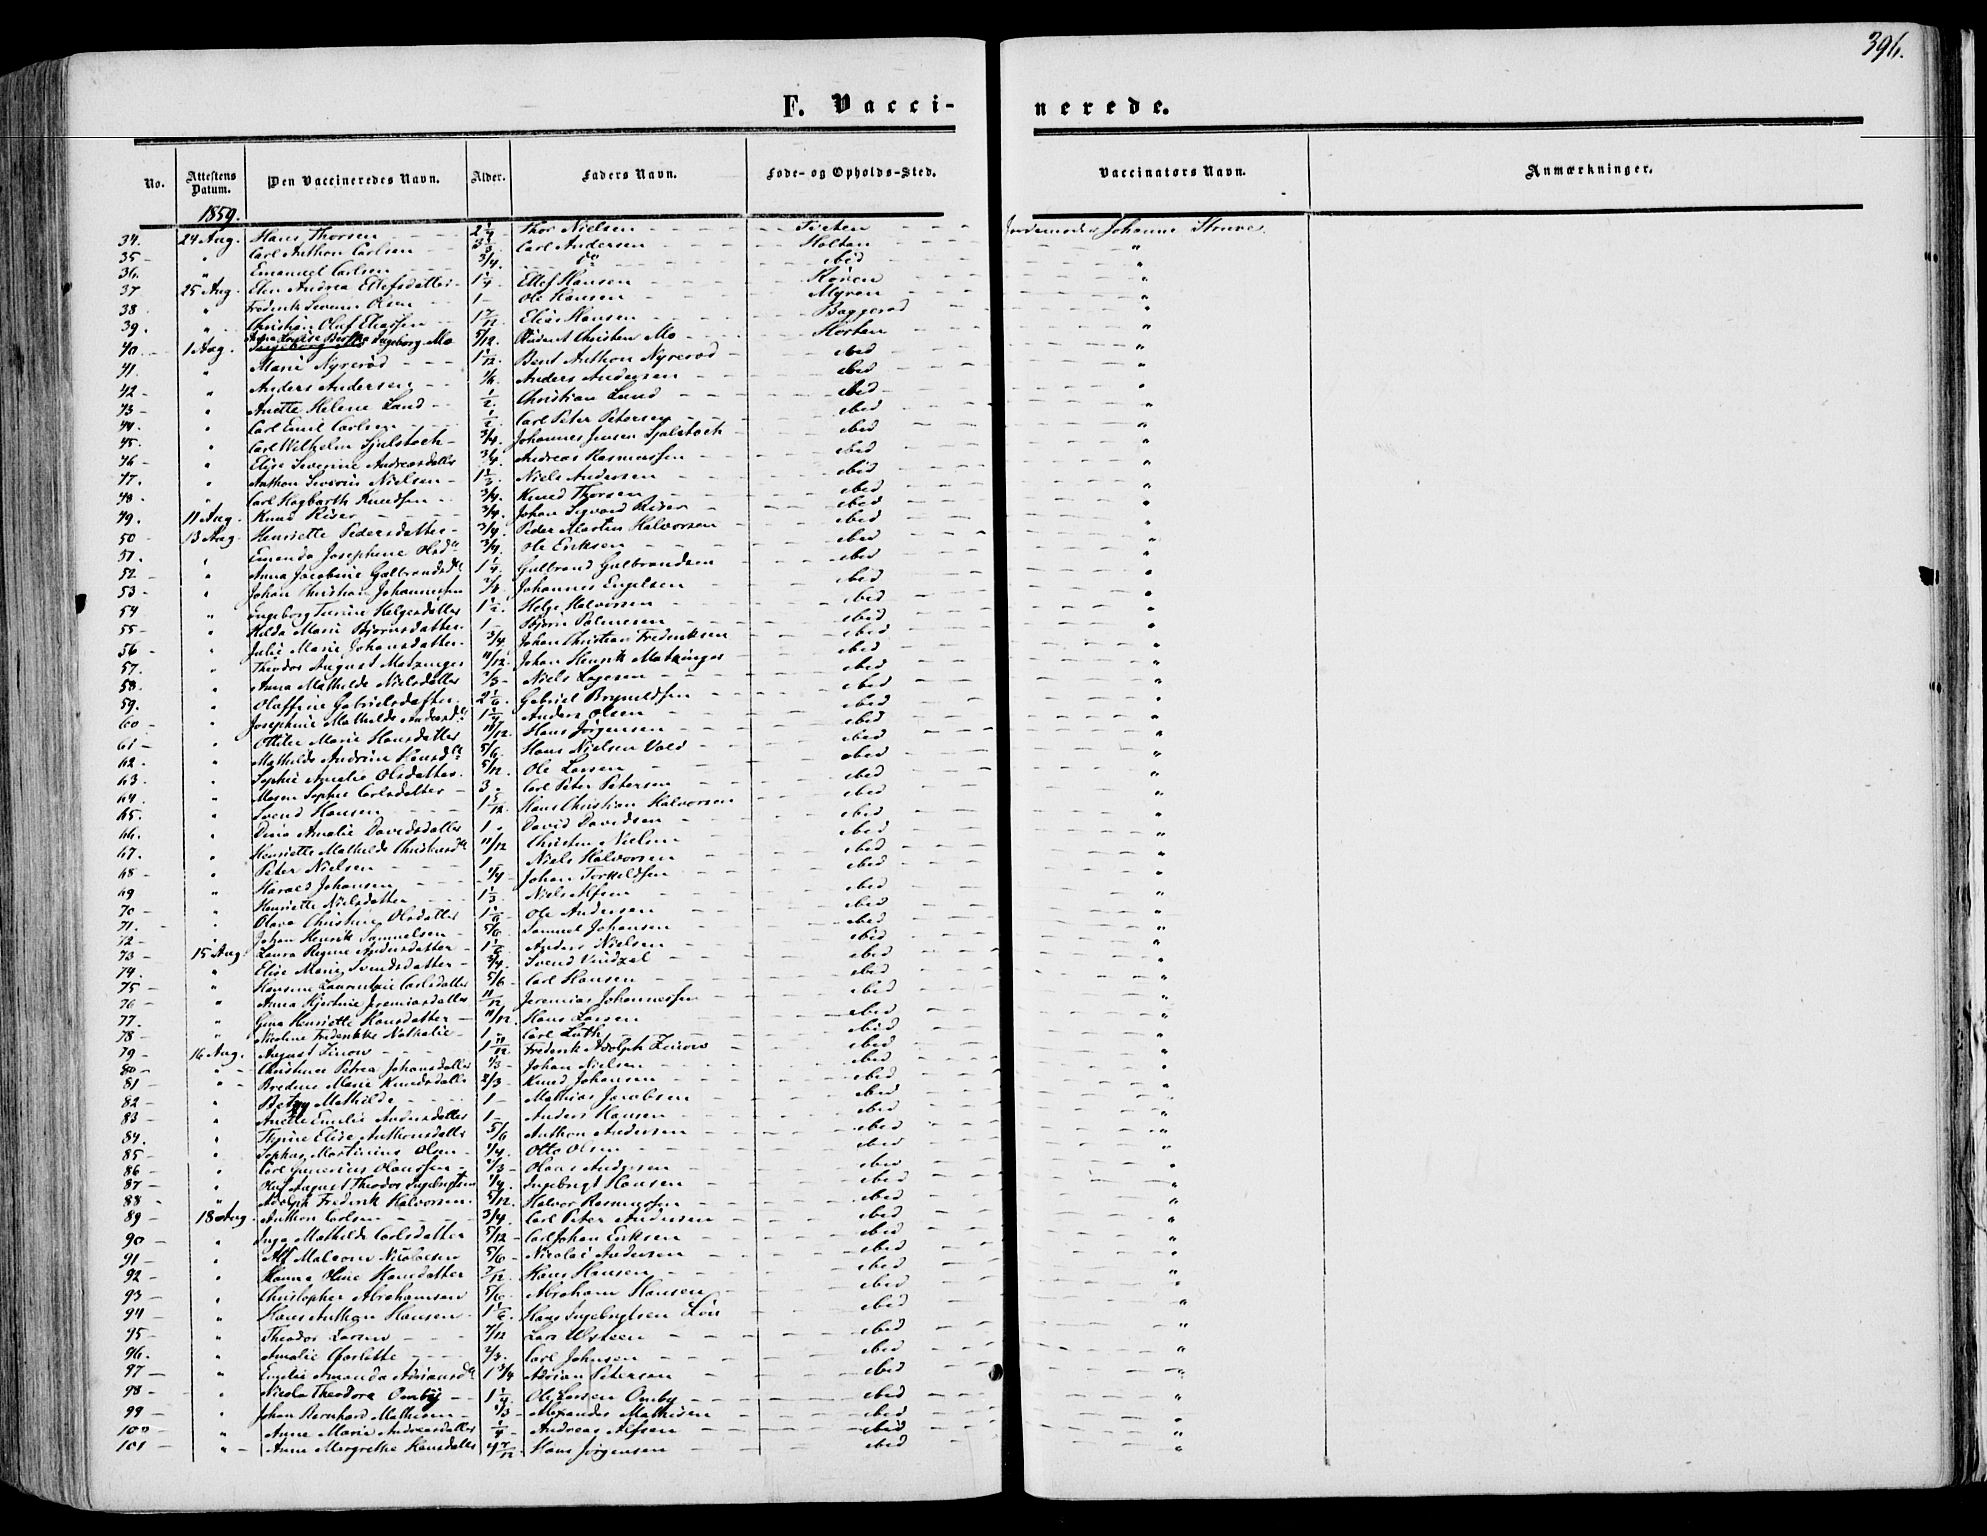 396.
F. Vacci-nerede.
No. Attestens Datum. Den Vaccineredes Navn. Alder. Faders Navn. Føde- og Opholds-Sted. Vaccinators Navn. Anmærkninger.
1859.
34. 24 Aug. Hans Thorsen 2 1/4 Thor Nielsen Tveten Jordemoder Johanne Struve
35 - " Carl Anthon Carlsen 3 1/3 Carl Andersen Holtan "
36. " Emanuel Carlsen 3/4 do ibid "
37 25 Aug. Elen Andrea Ellefsdatter 1 1/4 Ellef Hansen Røren "
38 " Frederik Severin Olsen 1 - Ole Hansen Myren "
39. " Christian Oluf Eliassen 1 7/12 Elias Hansen Baggerød "
40 - 1 Aug. Louise Bertha Ingeborg Mo 5/12 Student Christen Mo Horten "
41. " Marie Nyrerød 1 1/12 Bent Anthon Nyrerød ibid "
42 - " Anders Andersen 1/6 Anders Andersen ibid "
43 - " Anette Helene Lund 1/2 Christian Lund ibid "
44. " Carl Emil Carlsen 1/2 Carl Peter Petersen ibid "
45. " Carl Wilhelm Sjulstoch 3/4 Johannes Jensen Sjolstoch ibid "
46 - " Elise Severine Andreasdatter 3/4 Andreas Rasmussen ibid "
47. " Anthon Severin Nielsen 1 1/3 Niels Andersen ibid "
48. " Carl Hagbarth Knudsen 3/4. Knud Thorsen ibid "
49. 11 Aug. Knud Riser 3/4. Johan Sigvard Riser ibid "
50 - 13 Aug. Henriette Pedersdatter 3/4. Peder Martin Halvorsen ibid "
51. " Emenda Josephine Olsd. 3/4. Ole Eriksen ibid "
52 - " Anna Jacobine Gulbrandsd. 1 1/4 Gulbrand Gulbrandsen ibid "
53 - " Johan Christian Johannessen 2/3 Johannes Engelsen ibid "
54 " Ingeborg Helgesdatter 1 1/2 Helge Halvorsen ibid "
55 - " Hilda Marie Bjørnsdatter 1 - Bjørn Salmesen ibid "
56 - " Julie Marie Johansdatter 3/4 Johan Christian Frederiksen ibid "
57. " Theodor August Matzinger 11/12 Johan Henrik Matzinger ibid "
58. " Anna Mathilde Nielsdatter 2/3 - Niels Lagesen ibid "
59. " Olaffine Gabrielsdatter 2 1/6 Gabriel Brynildsen ibid "
60 - " Josephine Mathilde Andersd. 1 1/4 Anders Olsen ibid "
61 - " Ottilie Marie Hansdatter 11/12 Hans Jørgensen ibid "
62. " Mathilde Andrine Hansd. 5/6 Hans Nielsen Vold ibid "
63. " Sophie Amalie Olsdatter 5/12 Ole Larsen ibid "
64. " Maren Sophie Carlsdatter 3 - Carl Peter Petersen ibid "
65. " Svend Hansen 1 5/12 Hans Christian Halvorsen ibid "
66. " Dina Amalie Davidsdatter 1 - David Davidsen ibid "
67. " Henriette Mathilde Christensd. 11/12 Christen Nielsen ibid "
68 - " Peter Nielsen 1 - Niels Halvorsen ibid "
69 " Harald Johansen 1/4 - Johan Torkildsen ibid "
70 - " Henriette Nielsdatter 1 1/3 Niels Alfsen ibid "
71. " Olava Christine Olsdatter 1 1/6 Ole Andersen ibid "
72 - " Johan Henrik Samuelsen 5/6 Samuel Johansen ibid "
73 - 15 Aug. Laura Regine Andersdatter 1 1/6 Anders Nielsen ibid "
74. " Elise Marie Svendsdatter 3/4. Svend Vindsal ibid "
75 - " Hansine Laurentzie Carlsdatter 5/6 - Carl Hansen ibid "
76 - " Anna Hjertine Jeremiasdatter 11/12 Jeremias Johannessen ibid "
77. " Gina Henriette Hansdatter 11/12. Hans Larsen ibid "
78 - " Nicoline Frederikke Nathalie 1 - Carl Luth ibid "
79 - 16 Aug. August Linow 1 11/12 Frederik Adolph Linow ibid "
80 - " Christine Petrea Johansdatter 1/3 - Johan Nielsen ibid "
81 - " Bredine Marie Knudsdatter 2/3 - Knud Johansen ibid "
82 - " Betzy Mathilde 1 - Mathias Jacobsen ibid "
83 - " Anette Emilie Andersdatter 1 - Anders Hansen ibid "
84. " Thrine Elise Anthonsdatter 5/6 Anthon Andersen ibid "
85 - " Sophus Martinius Olsen 1/4. Otto Olsen ibid "
86 - " Carl Olaussen 2/3 - Olaus Andersen ibid "
87 - " Oluf August Theodor Ingebrigtsen 1/4. Ingebrigt Hansen ibid "
88 - " Adolph Frederik Halvorsen 5/12. Halvor Rasmussen ibid "
89 - 18 Aug. Anthon Carlsen 3/4. Carl Peter Andersen ibid "
90 - " Inga Mathilde Carlsdatter 5/12 - Carl Johan Eriksen ibid "
91 - " Alf Nicolaisen 5/6 - Nicolai Andersen ibid "
92 - " Hanna Oline Hansdatter 7/12. Hans Hansen ibid "
93 - " Christopher Abrahamsen 5/6 - Abraham Hansen ibid "
94 - " Hans Anthon Hansen 1 1/6 Hans Ingebrigtsen ibid "
95 - " Theodor Larsen 7/12 Lars Ulsteen ibid "
96. " Amalie Charlotte 2/3. Carl Johnsen ibid "
97 - " Engelie Amanda Adriansd. 1 3/4 Adrian Petersen ibid "
98 - " Nicolai Theodora Omby 1 1/4 Ole Larsen Omby ibid "
99 - " Johan Bernhard Mathisen 1/3 - Alexander Mathisen ibid "
100 - " Anne Marie Andreasdatter 1/4 - Andreas Alfsen ibid "
101 - " Anne Mergrethe Hansdatter 4 7/12 Hans Jørgensen ibid "